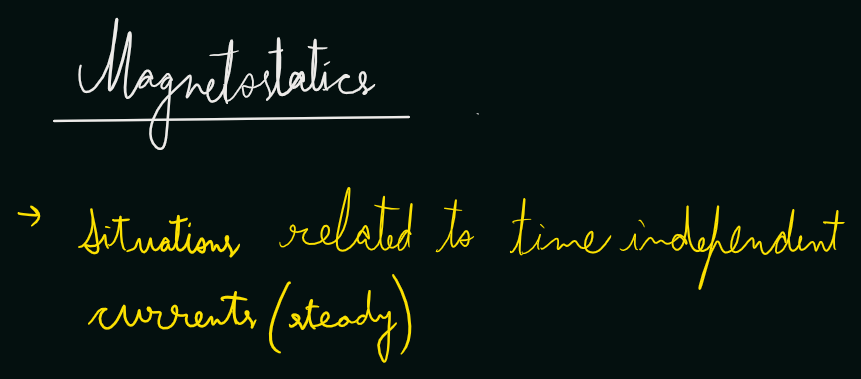 Magnetostatics
→ Situations related to time independent
currents (steady)